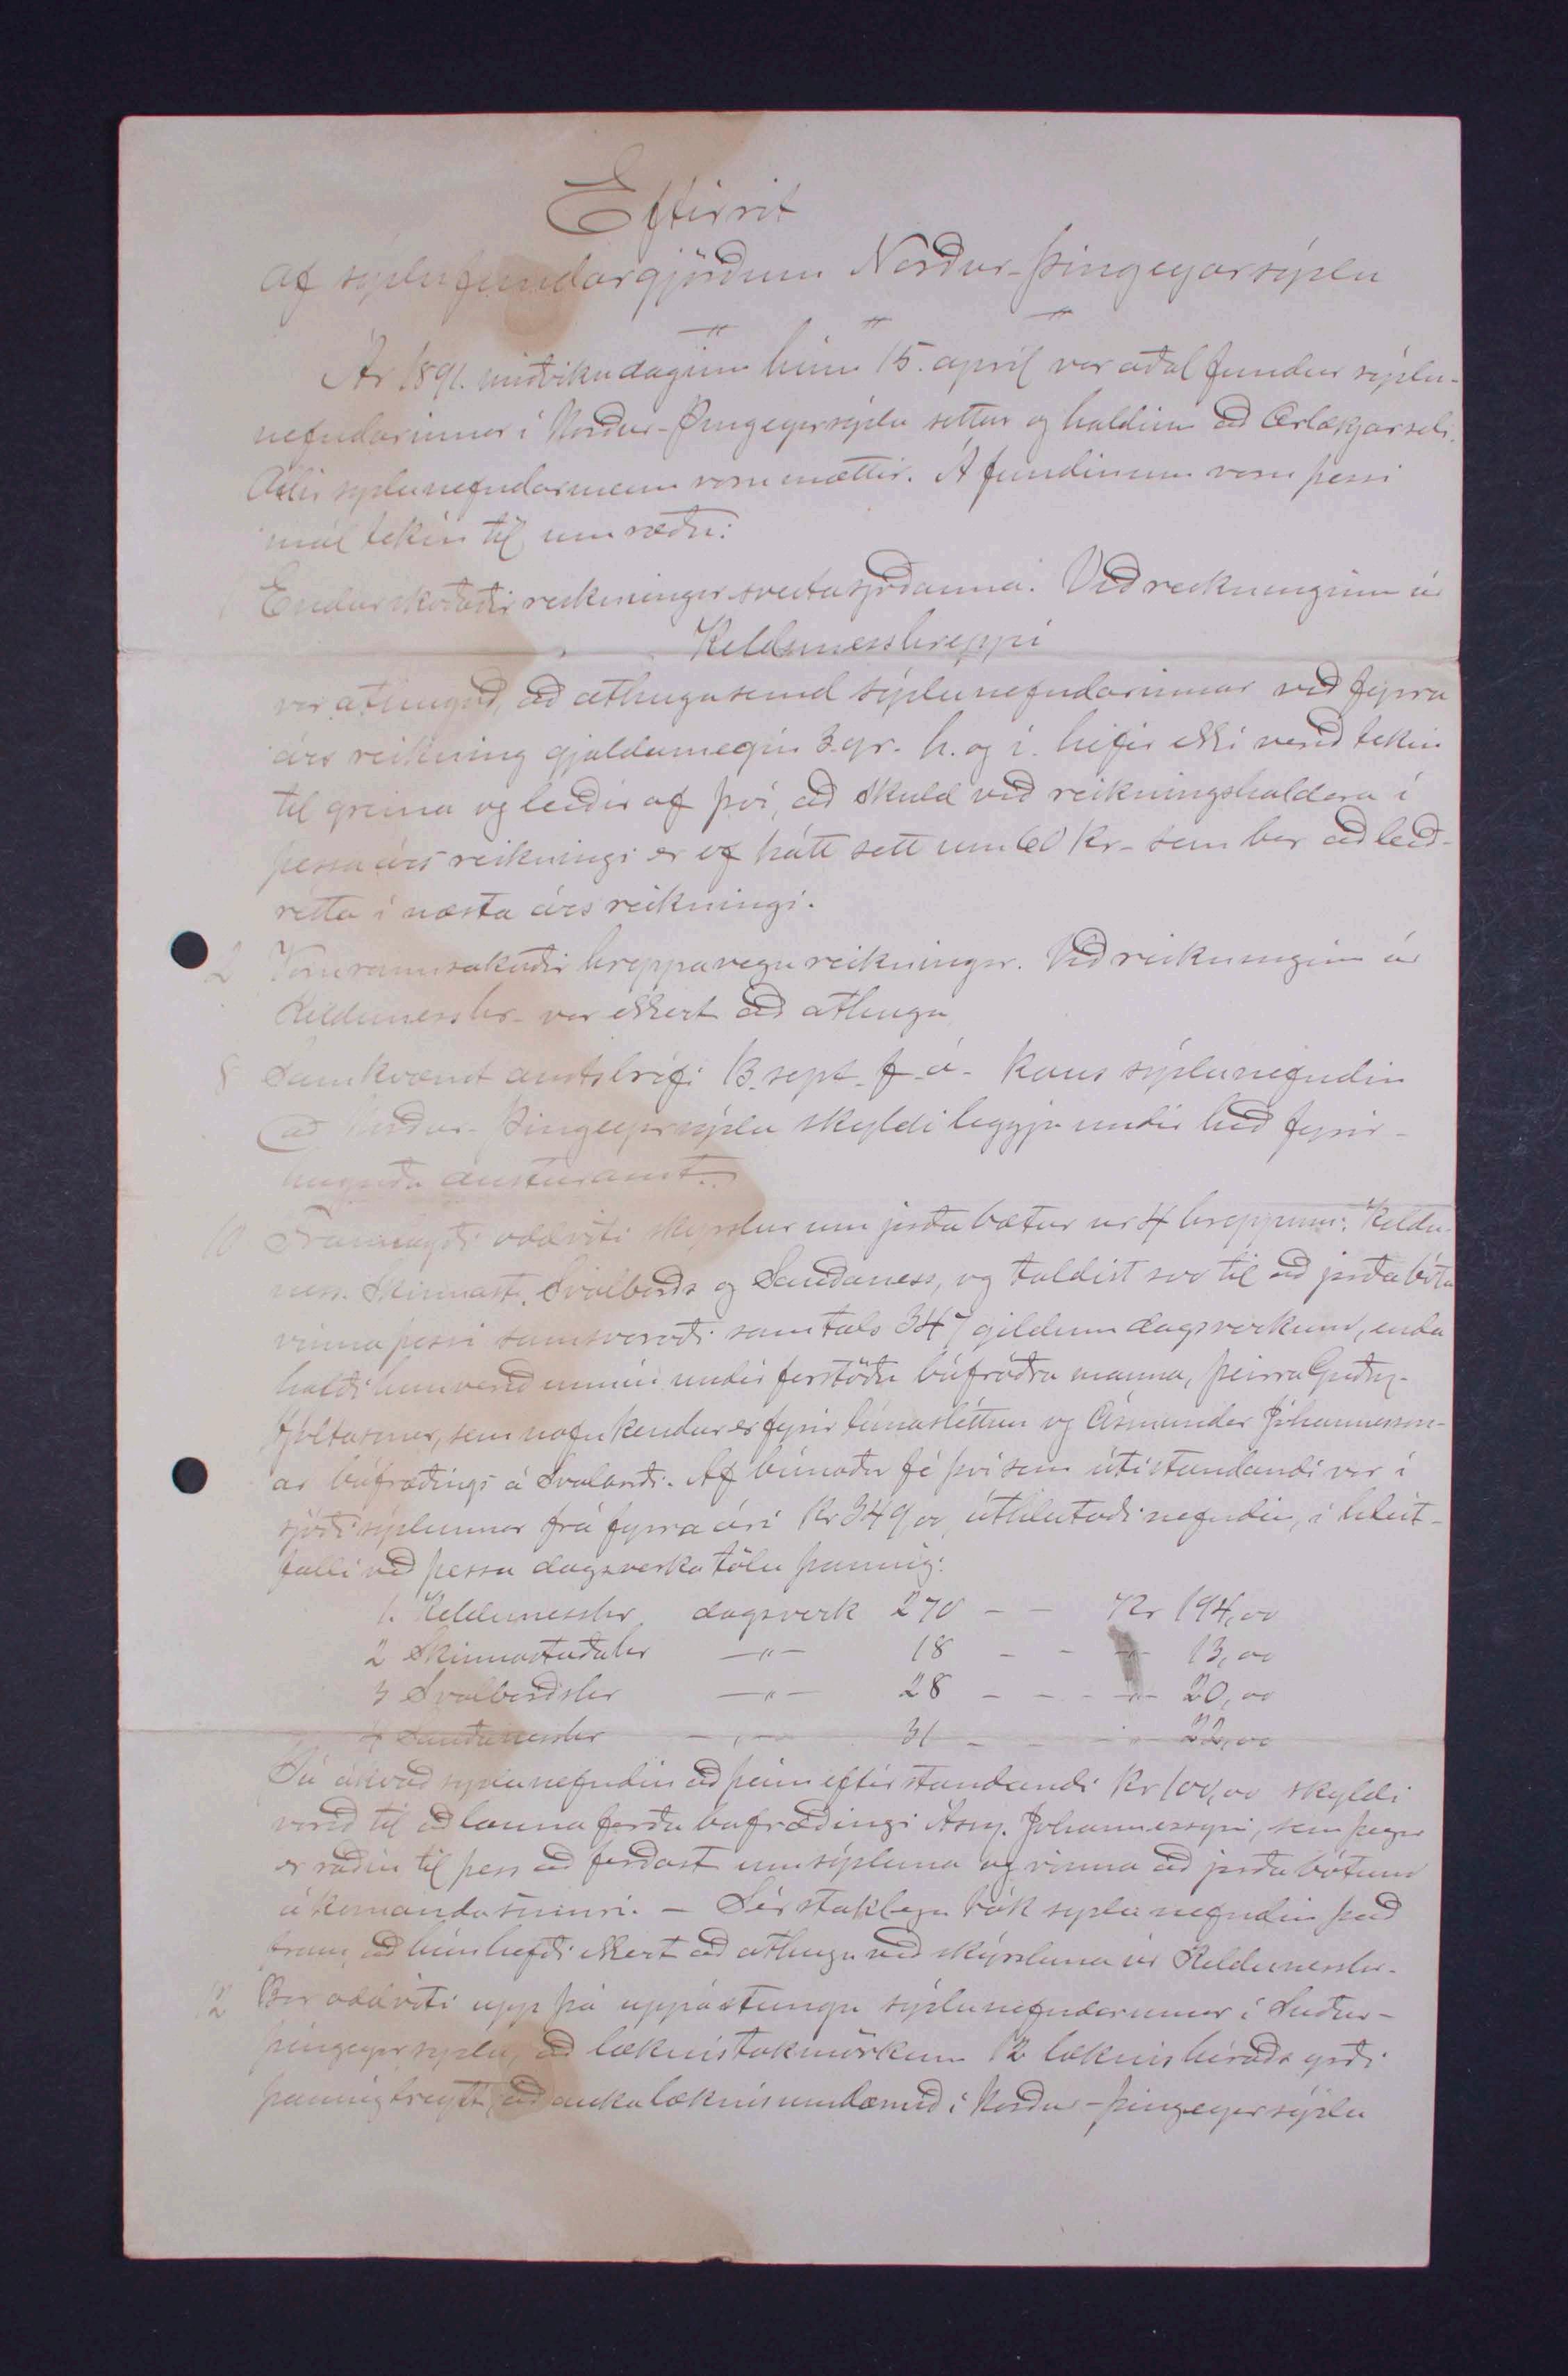 Eftirrit
af sýslufundargjörðum Norður-Þingeyarsýslu
Ár 1891. miðvikudaginn hinn 15. apríl var aðalfundur sýslu-
nefndarinnar i Norður-Þingeyarsýslu settur og haldinn að Ærlækjarseli.
Allir sýslunefndarmenn voru mættir. Á fundinum voru þessi
mál tekin til umræðu:
Endurskoðaðir reikningar sveitasjóðanna. Við reikninginn úr
Keldunesshreppi
var athugað, að athugasemd sýslunefndarinnar við fyrra
árs reikning gjaldamegin 3. gr. h. og i. hefir ekki verið tekin
til greina og leiðir af því, að skuld við reikningshaldara í
þessa árs reikningi er of hátt sett um 60 kr. sem ber að leið-
rétta í næsta árs reikningi.
2 Voru rannsakaðir hreppavegareikningar. Við reikninginn úr
Keldunesshr. var ekkert að athuga
8 Samkvæmt amtsbréfi 13. sept. f. á. kaus sýslunefndin
að Norður-Þingeyarsýsla skyldi leggja undir hið fyrir-
hugaða austuramt.
10 Framlagði oddviti skýrslur um jarðabætur úr 4 hreppum: Keldu-
ness. Skinnast. Svalbarðs og Sauðaness, og taldist svo til að jarðabóta
vinna þessi samsvaraði samtals 347 gildum dagsverkum, enda
hafði hún verið unnin undir forstöðu búfróðra manna, þeirra Guðm.
Hjaltasonar, sem nafnkendur er fyrir túnasléttur og Ásmundar Jóhannesson-
ar búfræðings á Svalarði. Af búnaðar fé því sem útistandandi var í
sjóði sýslunnar frá fyrra ári Kr 349,00 úthlutaði nefndin, í hlut-
falli við þessa dagsverka tölu þannig:
1. Keldunesshr. dagsverk 270 - - Kr 194,00
2 Skinnastaðahr —"— 18 - - -"- 13,00
3 Svalbarðshr —"— 28 - - -"- 20,00
4 Sauðanesshr —"— 31 - - -"- 22,00
Þá ákvað sýslunefndin að þeim eftirstandandi Kr 100,00 skyldi
varið til að launa jarðabúfræðingi Ásm. Jóhannessyni, sem þegar
er ráðinn til þess að ferðast um sýsluna og vinna að jarðabótum
á komanda sumri. - Sérstaklega tók sýslunefndin það
fram, að hún hefði ekkert að athuga við skýrsluna úr Keldunesshr.
12 Bar oddviti upp þá uppástungu sýslunefndarinnar í Suður-
þingeyarsýslu, að læknistakmörkum 12 læknishéraðs yrði
þannig breytt, að aukalæknisumdæmið i Norður-þingeyarsýslu